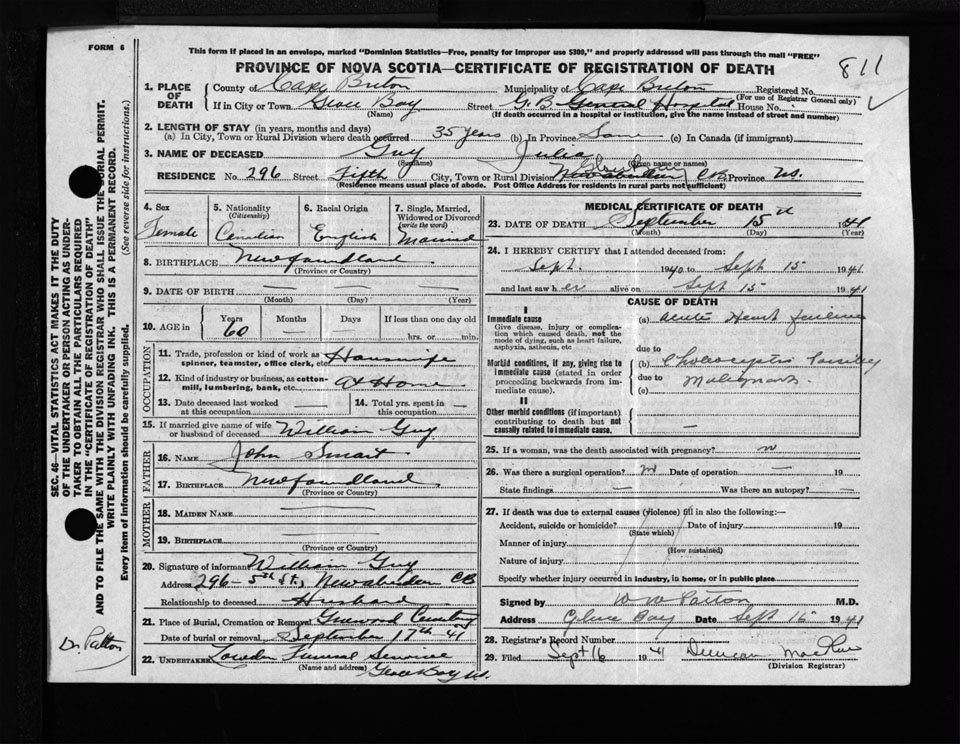 FORM 6
This form if placed in an envelope, marked "Dominion Statistics—Free, penalty for improper use $300," and properly addressed will pass through the mail "FREE"
PROVINCE OF NOVA SCOTIA—CERTIFICATE OF REGISTRATION OF DEATH
811
SEC. 46—VITAL STATISTICS ACT MAKES IT THE DUTY
OF THE UNDERTAKER OR PERSON ACTING AS UNDER-
TAKER TO OBTAIN ALL THE PARTICULARS REQUIRED
IN THE "CERTIFICATE OF REGISTRATION OF DEATH"
AND TO FILE THE SAME WITH THE DIVISION REGISTRAR WHO SHALL ISSUE THE BURIAL PERMIT.
WRITE PLAINLY WITH UNFADING INK. THIS IS A PERMANENT RECORD.
Every item of information should be carefully supplied. (See reverse side for instructions.)
Dr. Patton
1. PLACE OF DEATH
County of Cape Breton Municipality of Cape Breton Registered No.
(For use of Registrar General only)
If in City or Town Glace Bay Street G. B. General Hospital House No.
(Name) (If death occurred in a hospital or institution, give the name instead of street and number)
2. LENGTH OF STAY (in years, months and days)
(a) In City, Town or Rural Division where death occurred 35 years (b) In Province Same (c) In Canada (if immigrant)
3. NAME OF DECEASED Guy Julia
(Surname) (Given name or names)
RESIDENCE No. 296 Street Fifth City, Town or Rural Division New Aberdeen C.B. Province N.S.
(Residence means usual place of abode. Post Office Address for residents in rural parts not sufficient)
4. Sex Female
5. Nationality (Citizenship) Canadian
6. Racial Origin English
7. Single, Married, Widowed or Divorced (write the word) Married
8. BIRTHPLACE Newfoundland
(Province or Country)
9. DATE OF BIRTH
(Month) (Day) (Year)
10. AGE in Years 60 Months — Days — If less than one day old
hrs. or min.
OCCUPATION
11. Trade, profession or kind of work as spinner, teamster, office clerk, etc. Housewife
12. Kind of industry or business, as cotton-mill, lumbering, bank, etc. At Home
13. Date deceased last worked at this occupation —
14. Total yrs. spent in this occupation —
15. If married give name of wife or husband of deceased William Guy
FATHER
16. Name John Smart
17. Birthplace Newfoundland
(Province or Country)
MOTHER
18. Maiden Name
19. Birthplace
(Province or Country)
20. Signature of informant William Guy
Address 296 - 5th St., New Aberdeen CB
Relationship to deceased Husband
21. Place of Burial, Cremation or Removal Greenwood Cemetery
Date of burial or removal September 17th 41
22. Undertaker Funeral Service
(Name and address) Glace Bay
MEDICAL CERTIFICATE OF DEATH
23. DATE OF DEATH September 15th 1941
(Month) (Day) (Year)
24. I HEREBY CERTIFY that I attended deceased from:
Sept. 1940 to Sept 15 1941
and last saw her alive on Sept 15 1941
CAUSE OF DEATH
I
Immediate cause
Give disease, injury or complication which caused death, not the mode of dying, such as heart failure, asphyxia, asthenia, etc.
(a) Acute Heart failure
due to
Morbid conditions, if any, giving rise to immediate cause (stated in order proceeding backwards from immediate cause).
(b)
due to
(c)
II
Other morbid conditions (if important) contributing to death but not causally related to immediate cause.
—
25. If a woman, was the death associated with pregnancy? n
26. Was there a surgical operation? n Date of operation — 19
State findings — Was there an autopsy? —
27. If death was due to external causes (violence) fill in also the following:—
Accident, suicide or homicide? Date of injury 19
(State which)
Manner of injury
(How sustained)
Nature of injury
Specify whether injury occurred in industry, in home, or in public place
Signed by W W Patton M.D.
Address Glace Bay Date Sept 16 1941
28. Registrar's Record Number
29. Filed Sept 16 1941 Duncan
(Division Registrar)